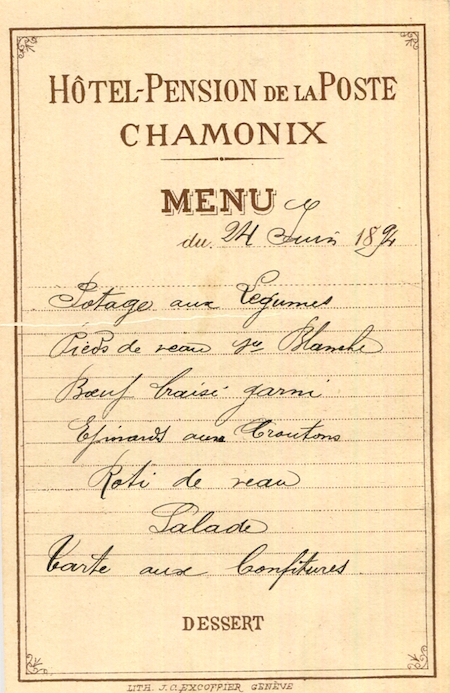 HÔTEL-PENSION DE LA POSTE
CHAMONIX
MENU
du 24 Juin 1894
Potage aux Légumes
Pieds de veau Sce Blanche
Bœuf braisé garni
Epinards aux Croutons
Roti de veau
Salade
Tarte aux Confitures
DESSERT
LITH. J.C. EXCOFFIER GENÈVE